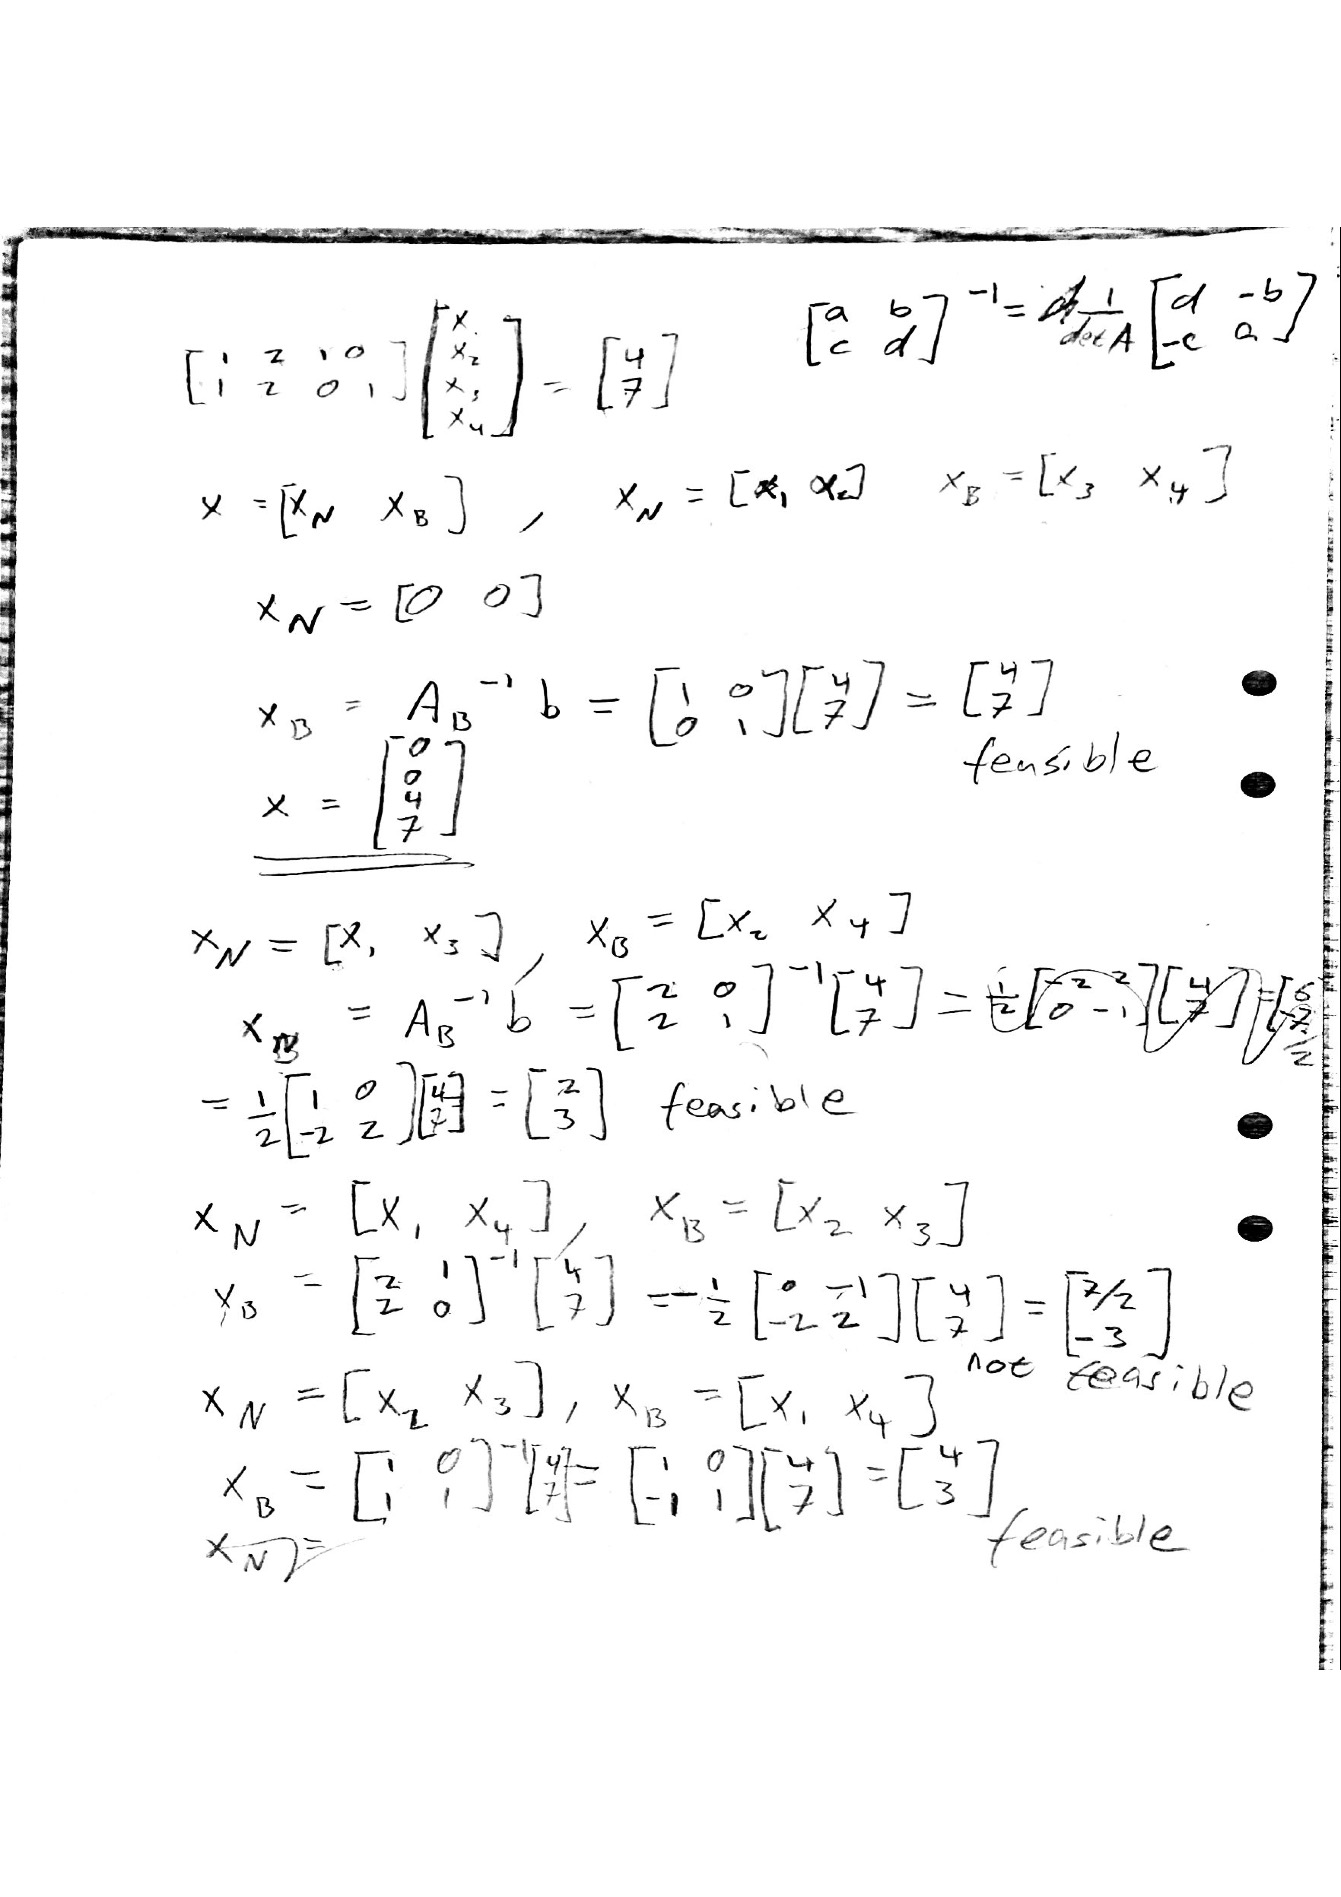 [1 2 1 0; 1 2 0 1] [x₁; x₂; x₃; x₄] = [4; 7]
[a b; c d]⁻¹ = 1/det A [d -b; -c a]
x = [x_N x_B] , x_N = [x₁ x₂] x_B = [x₃ x₄]
x_N = [0 0]
x_B = A_B⁻¹ b = [1 0; 0 1] [4; 7] = [4; 7]
feasible
x = [0; 0; 4; 7]
x_N = [x₁ x₃] , x_B = [x₂ x₄]
x_B = A_B⁻¹ b = [2 0; 2 1]⁻¹ [4; 7] =
= 1/2 [1 0; -2 2] [4; 7] = [2; 3] feasible
x_N = [x₁ x₄] , x_B = [x₂ x₃]
x_B = [2 1; 2 0]⁻¹ [4; 7] = -1/2 [0 -1; -2 2] [4; 7] = [7/2; -3]
not feasible
x_N = [x₂ x₃] , x_B = [x₁ x₄]
x_B = [1 0; 1 1]⁻¹ [4; 7] = [1 0; -1 1] [4; 7] = [4; 3]
feasible
x_N =